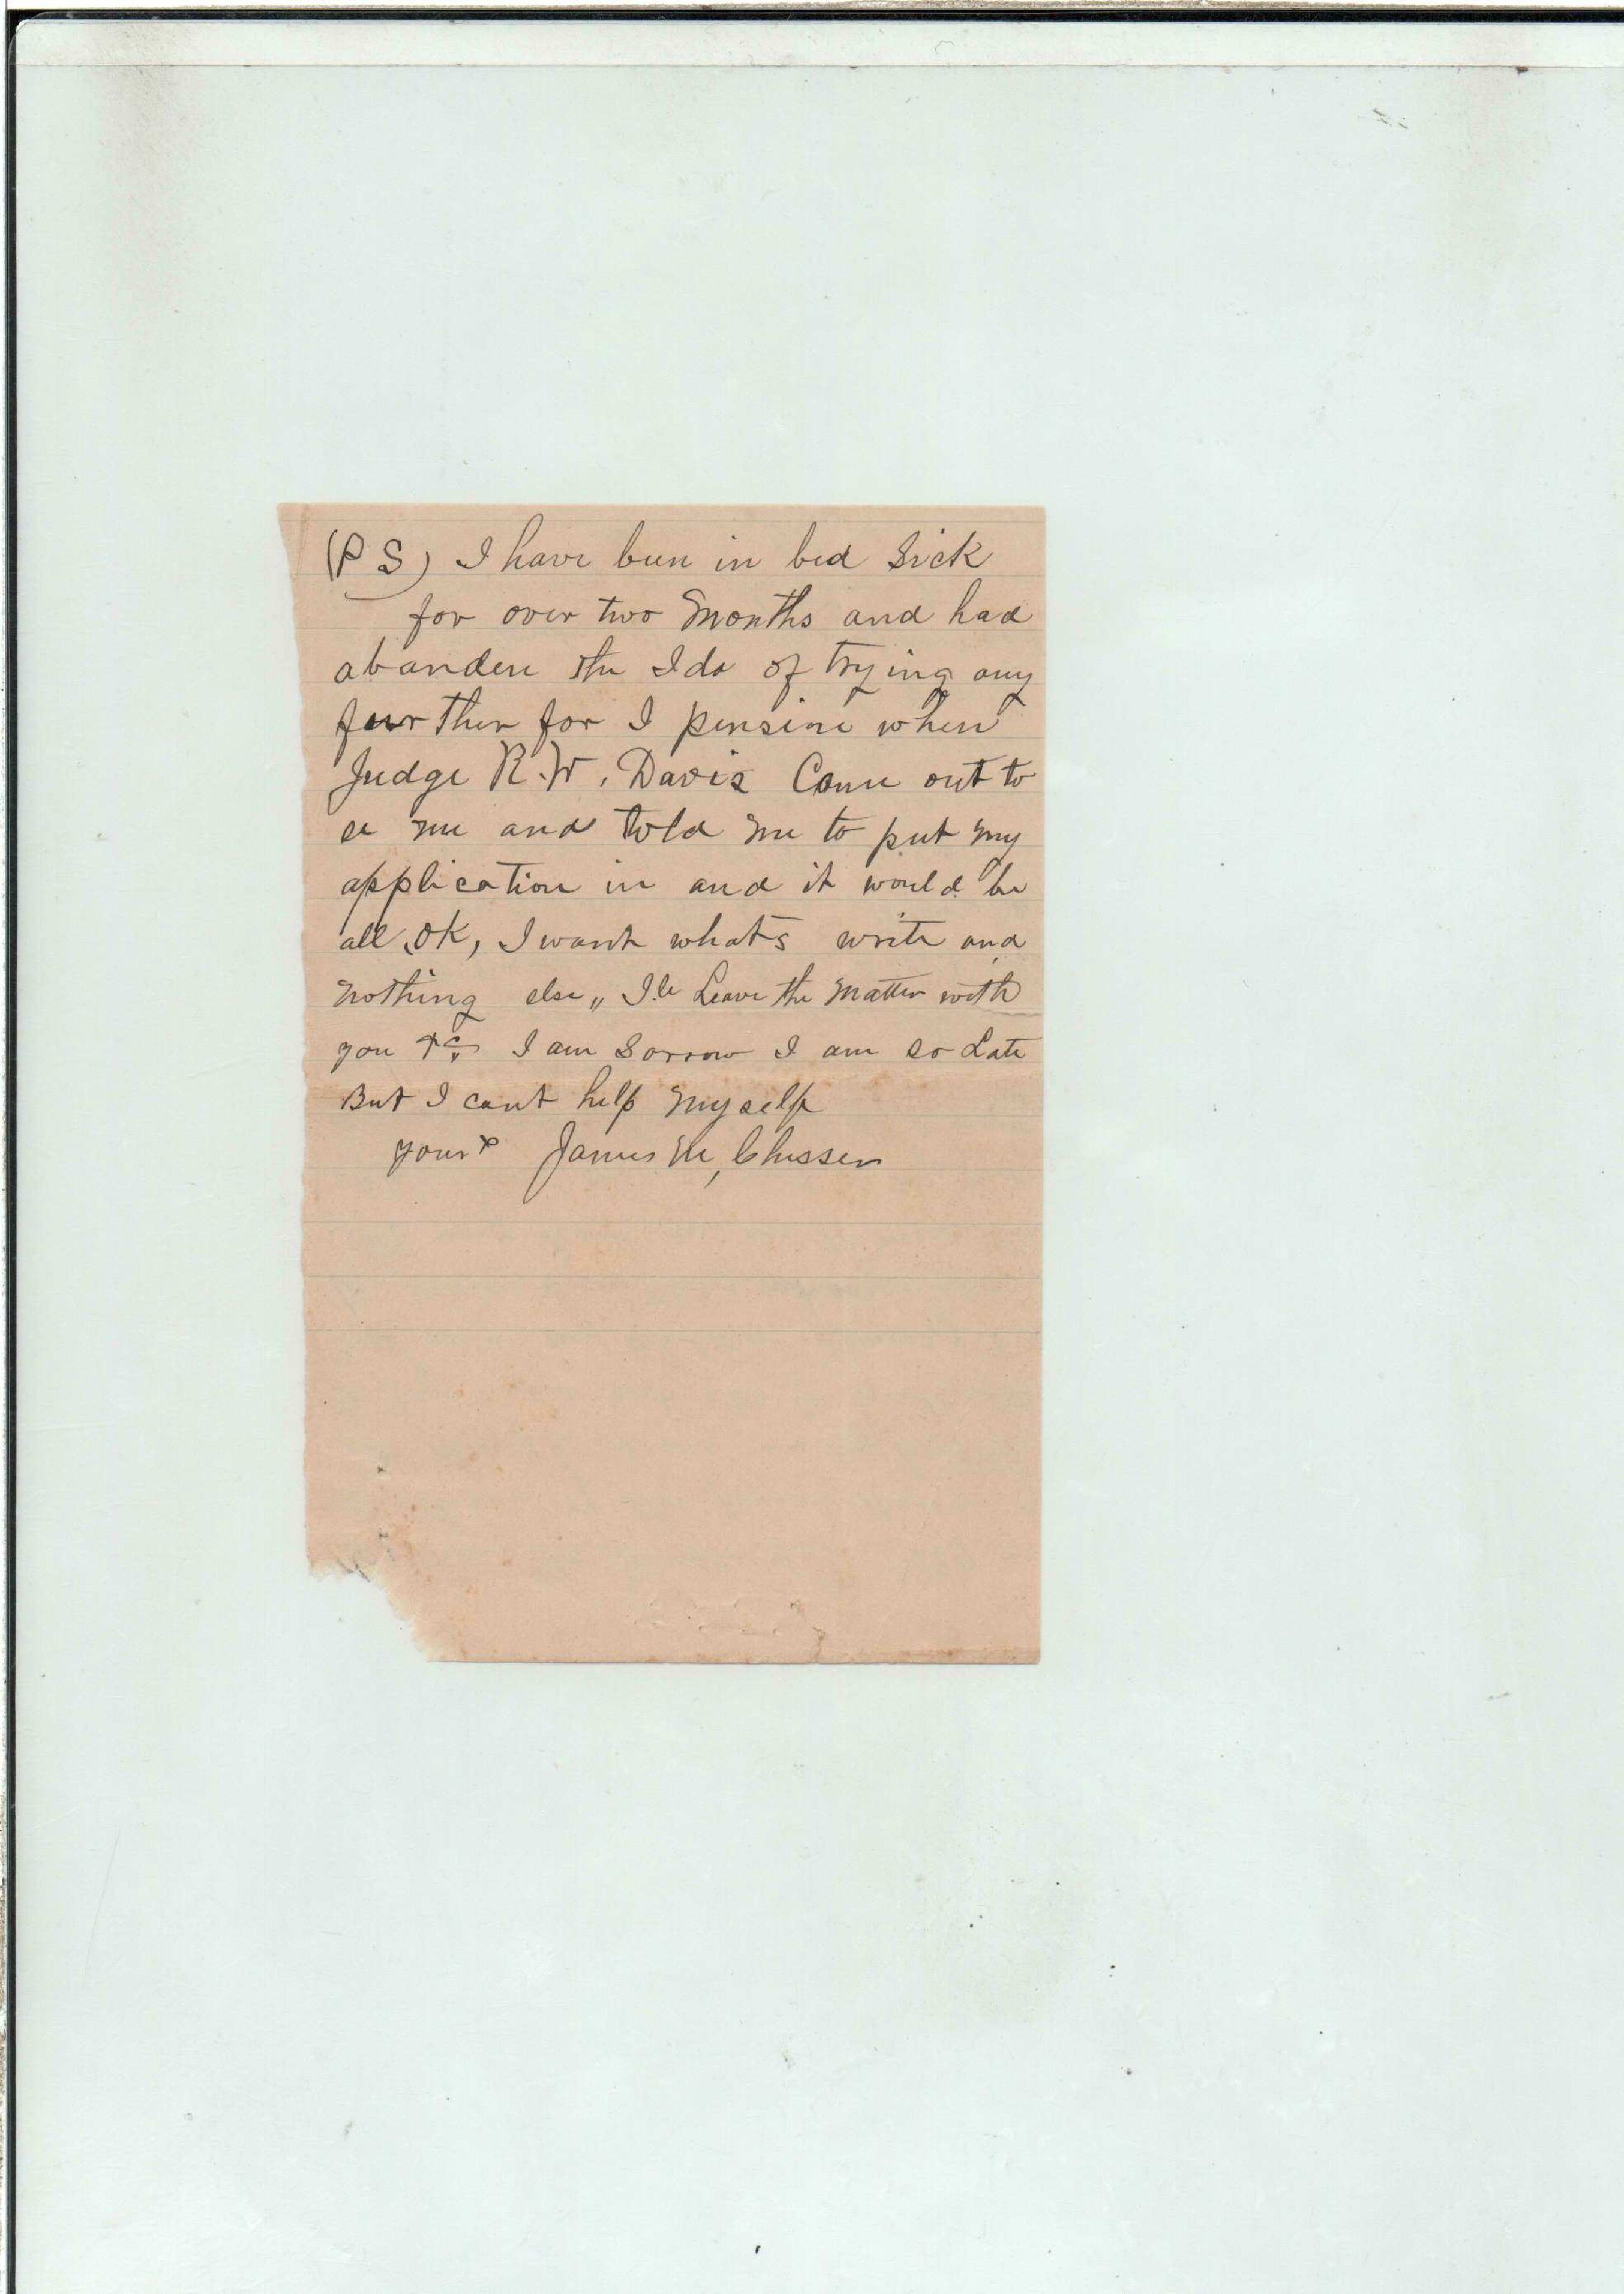 (PS) I have been in bed Sick
for over two Months and had
abanden the Ida of trying any
further for I pensine when
Judge R. W. Davis Came out to
se me and told me to put my
application in and it would be
all OK, I want whats write and
nothing else,, I'le Leave the Matter with
you &c I am Sorrow I am so Late
But I cant help Myself
yours James M,